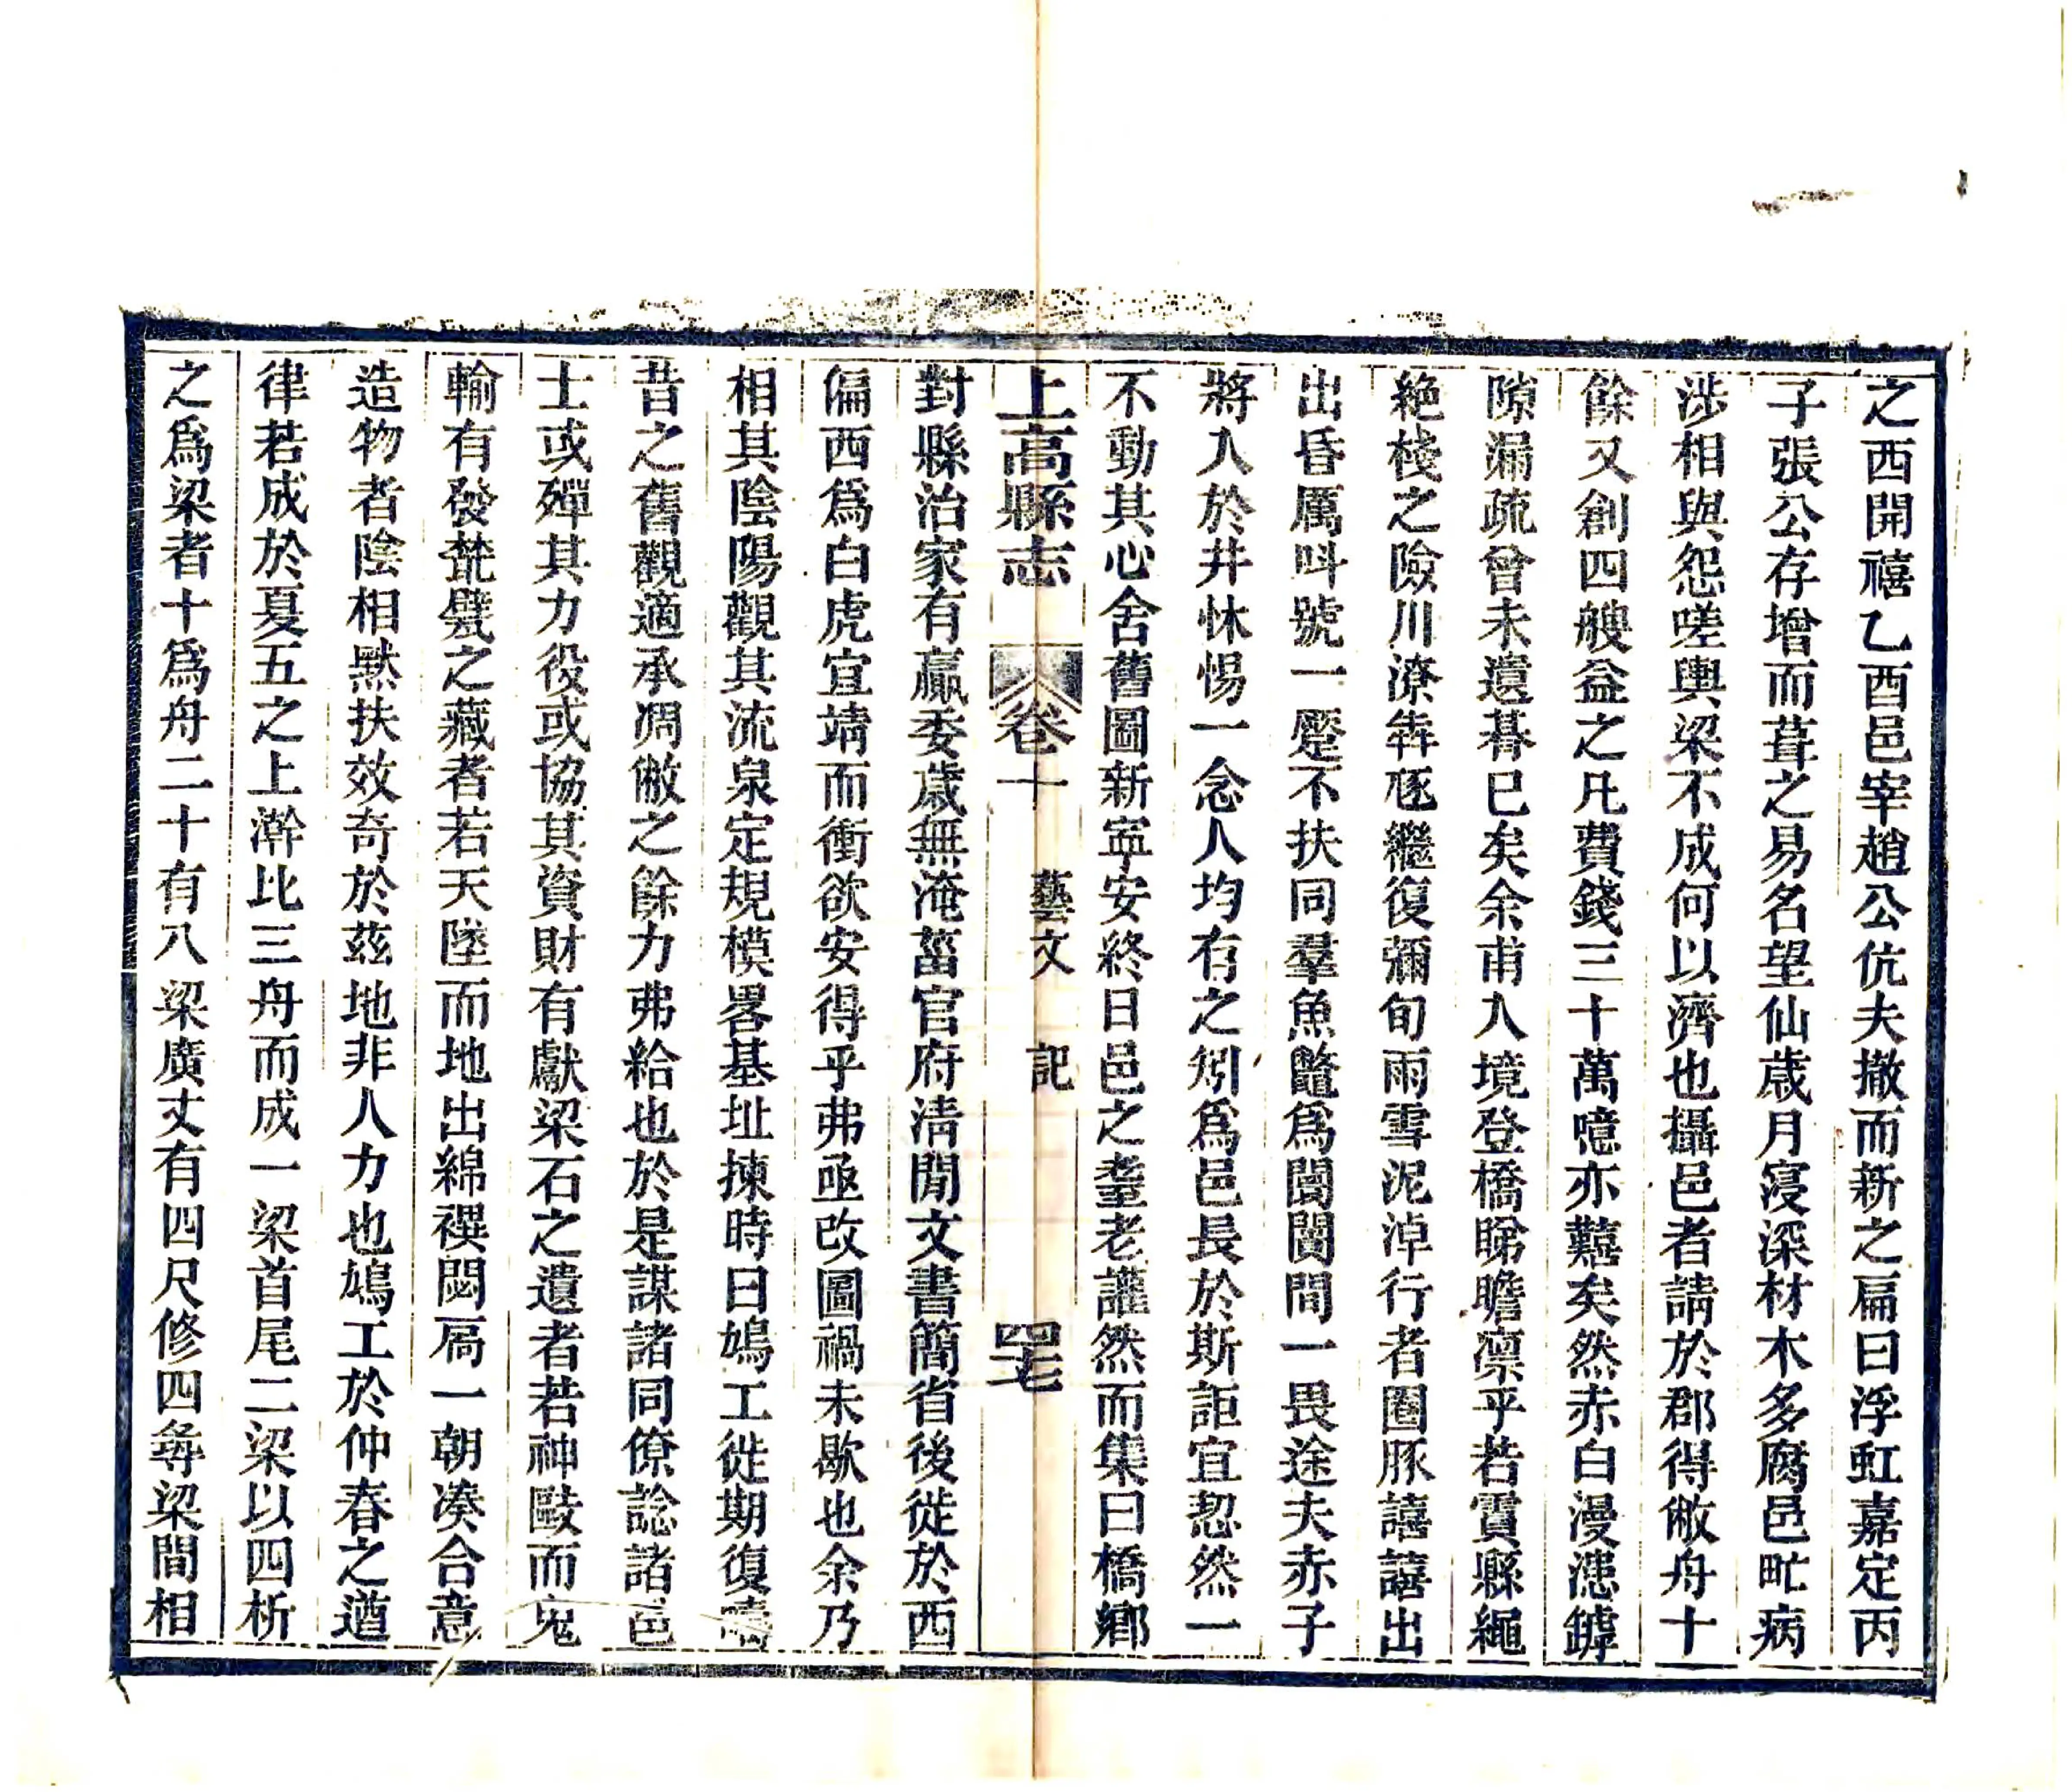 之西開禧乙酉邑宰趙公伉夫撤而新之扁曰浮虹嘉定丙
子張公存增而葺之易名望仙歳月寖深材木多腐邑甿病
涉相與怨嗟輿梁不成何以濟也攝邑者請於郡得敝舟十
餘又創四艘益之凡費錢三十萬噫亦囏矣然赤白漫漶罅
隙漏疏曾未遺朞已矣余甫入境登橋睇瞻凛乎若實縣繩
絶棧之險川潦犇豗繼復彌旬雨雪泥淖行者圈豚譆譆出
出昏厲呌號一蹷不扶同羣魚鼈爲闤闠間一畏途夫赤子
將入於井怵惕一念人均有之矧爲邑長於斯詎宜恝然一
不動其心舍舊圖新寍安終日邑之耋老讙然而集曰橋鄉
上高縣志 卷十 藝文 記 四七
對縣治家有羸委歳無淹菑官府淸閒文書簡省後徙於西
偏西爲白虎宜靖而衝欲安得乎弗亟改圖禍未歇也余乃
相其陰陽觀其流泉定規模畧基址揀時日鳩工徙期復
昔之舊觀適承凋敝之餘力弗給也於是謀諸同僚諗諸邑
士或殫其力役或協其資財有獻梁石之遺者若神毆而鬼
輸有發㼽甓之藏者若天墜而地出綿禩閟扃一朝湊合意
造物者陰相黙扶效奇於茲地非人力也鳩工於仲春之遒
律若成於夏五之上澣比三舟而成一梁首尾二梁以四析
之爲梁者十爲舟二十有八梁廣丈有四尺修四尋梁間相